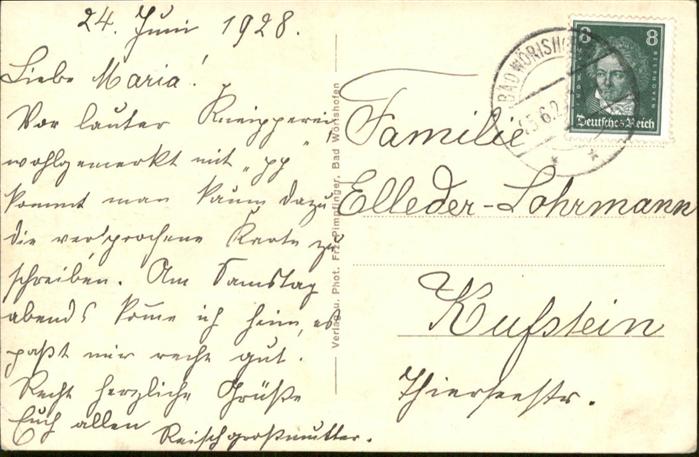 24. Juni 1928.
Liebe Maria!
Vor lauter Kneipperei,
wohlgemerkt mit „pp"
kommt man kaum dazu
die versprochene Karte zu
schreiben. Am Samstag
abends kome ich heim, es
paßt mir recht gut.
Recht herzliche Grüße
Euch allen
Reischgroßmutter.
Verlag u. Phot. Frz. Pimpfinger, Bad Wörishofen
BAD WÖRISHO
8 8
Deutsches Reich
Familie
Elleder-Lohrmann
Kufstein
Thierseestr.